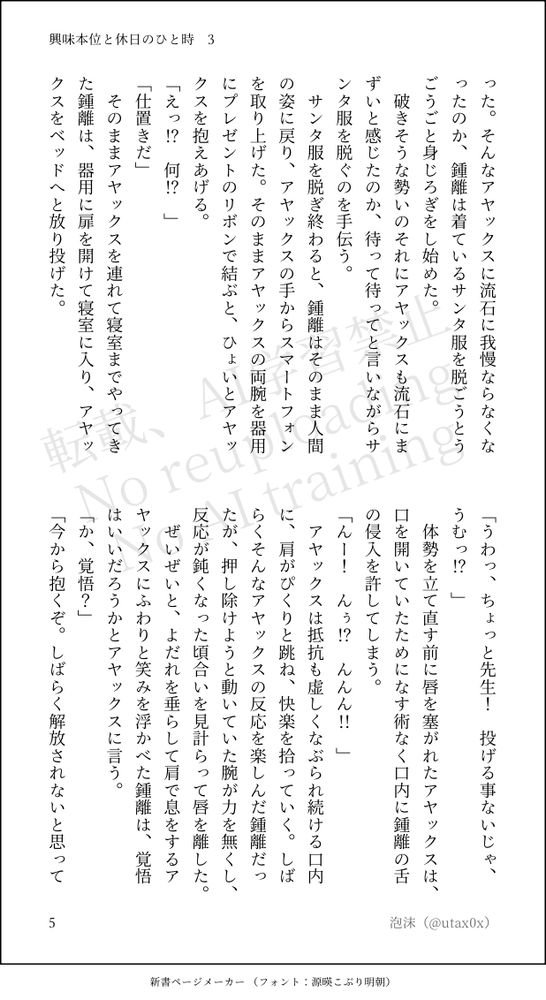 興味本位と休日のひと時　3
った。そんなアヤックスに流石に我慢ならなくな
ったのか、鍾離は着ているサンタ服を脱ごうとう
ごうごと身じろぎをし始めた。
　破きそうな勢いのそれにアヤックスも流石にま
ずいと感じたのか、待って待ってと言いながらサ
ンタ服を脱ぐのを手伝う。
　サンタ服を脱ぎ終わると、鍾離はそのまま人間
の姿に戻り、アヤックスの手からスマートフォン
を取り上げた。そのままアヤックスの両腕を器用
にプレゼントのリボンで結ぶと、ひょいとアヤッ
クスを抱えあげる。
「えっ!?　何!?　」
「仕置きだ」
　そのままアヤックスを連れて寝室までやってき
た鍾離は、器用に扉を開けて寝室に入り、アヤッ
クスをベッドへと放り投げた。
「うわっ、ちょっと先生！　投げる事ないじゃ、
うむっ!?　」
　体勢を立て直す前に唇を塞がれたアヤックスは、
口を開いていたためになす術なく口内に鍾離の舌
の侵入を許してしまう。
「んー！　んぅ!?　んんん!!　」
　アヤックスは抵抗も虚しくなぶられ続ける口内
に、肩がぴくりと跳ね、快楽を拾っていく。しば
らくそんなアヤックスの反応を楽しんだ鍾離だっ
たが、押し除けようと動いていた腕が力を無くし、
反応が鈍くなった頃合いを見計らって唇を離した。
　ぜいぜいと、よだれを垂らして肩で息をするア
ヤックスにふわりと笑みを浮かべた鍾離は、覚悟
はいいだろうかとアヤックスに言う。
「か、覚悟？」
「今から抱くぞ。しばらく解放されないと思って
転載、AI学習禁止
No reuploading
No AI training
5
泡沫（@utax0x）
新書ページメーカー（フォント：源暎こぶり明朝）